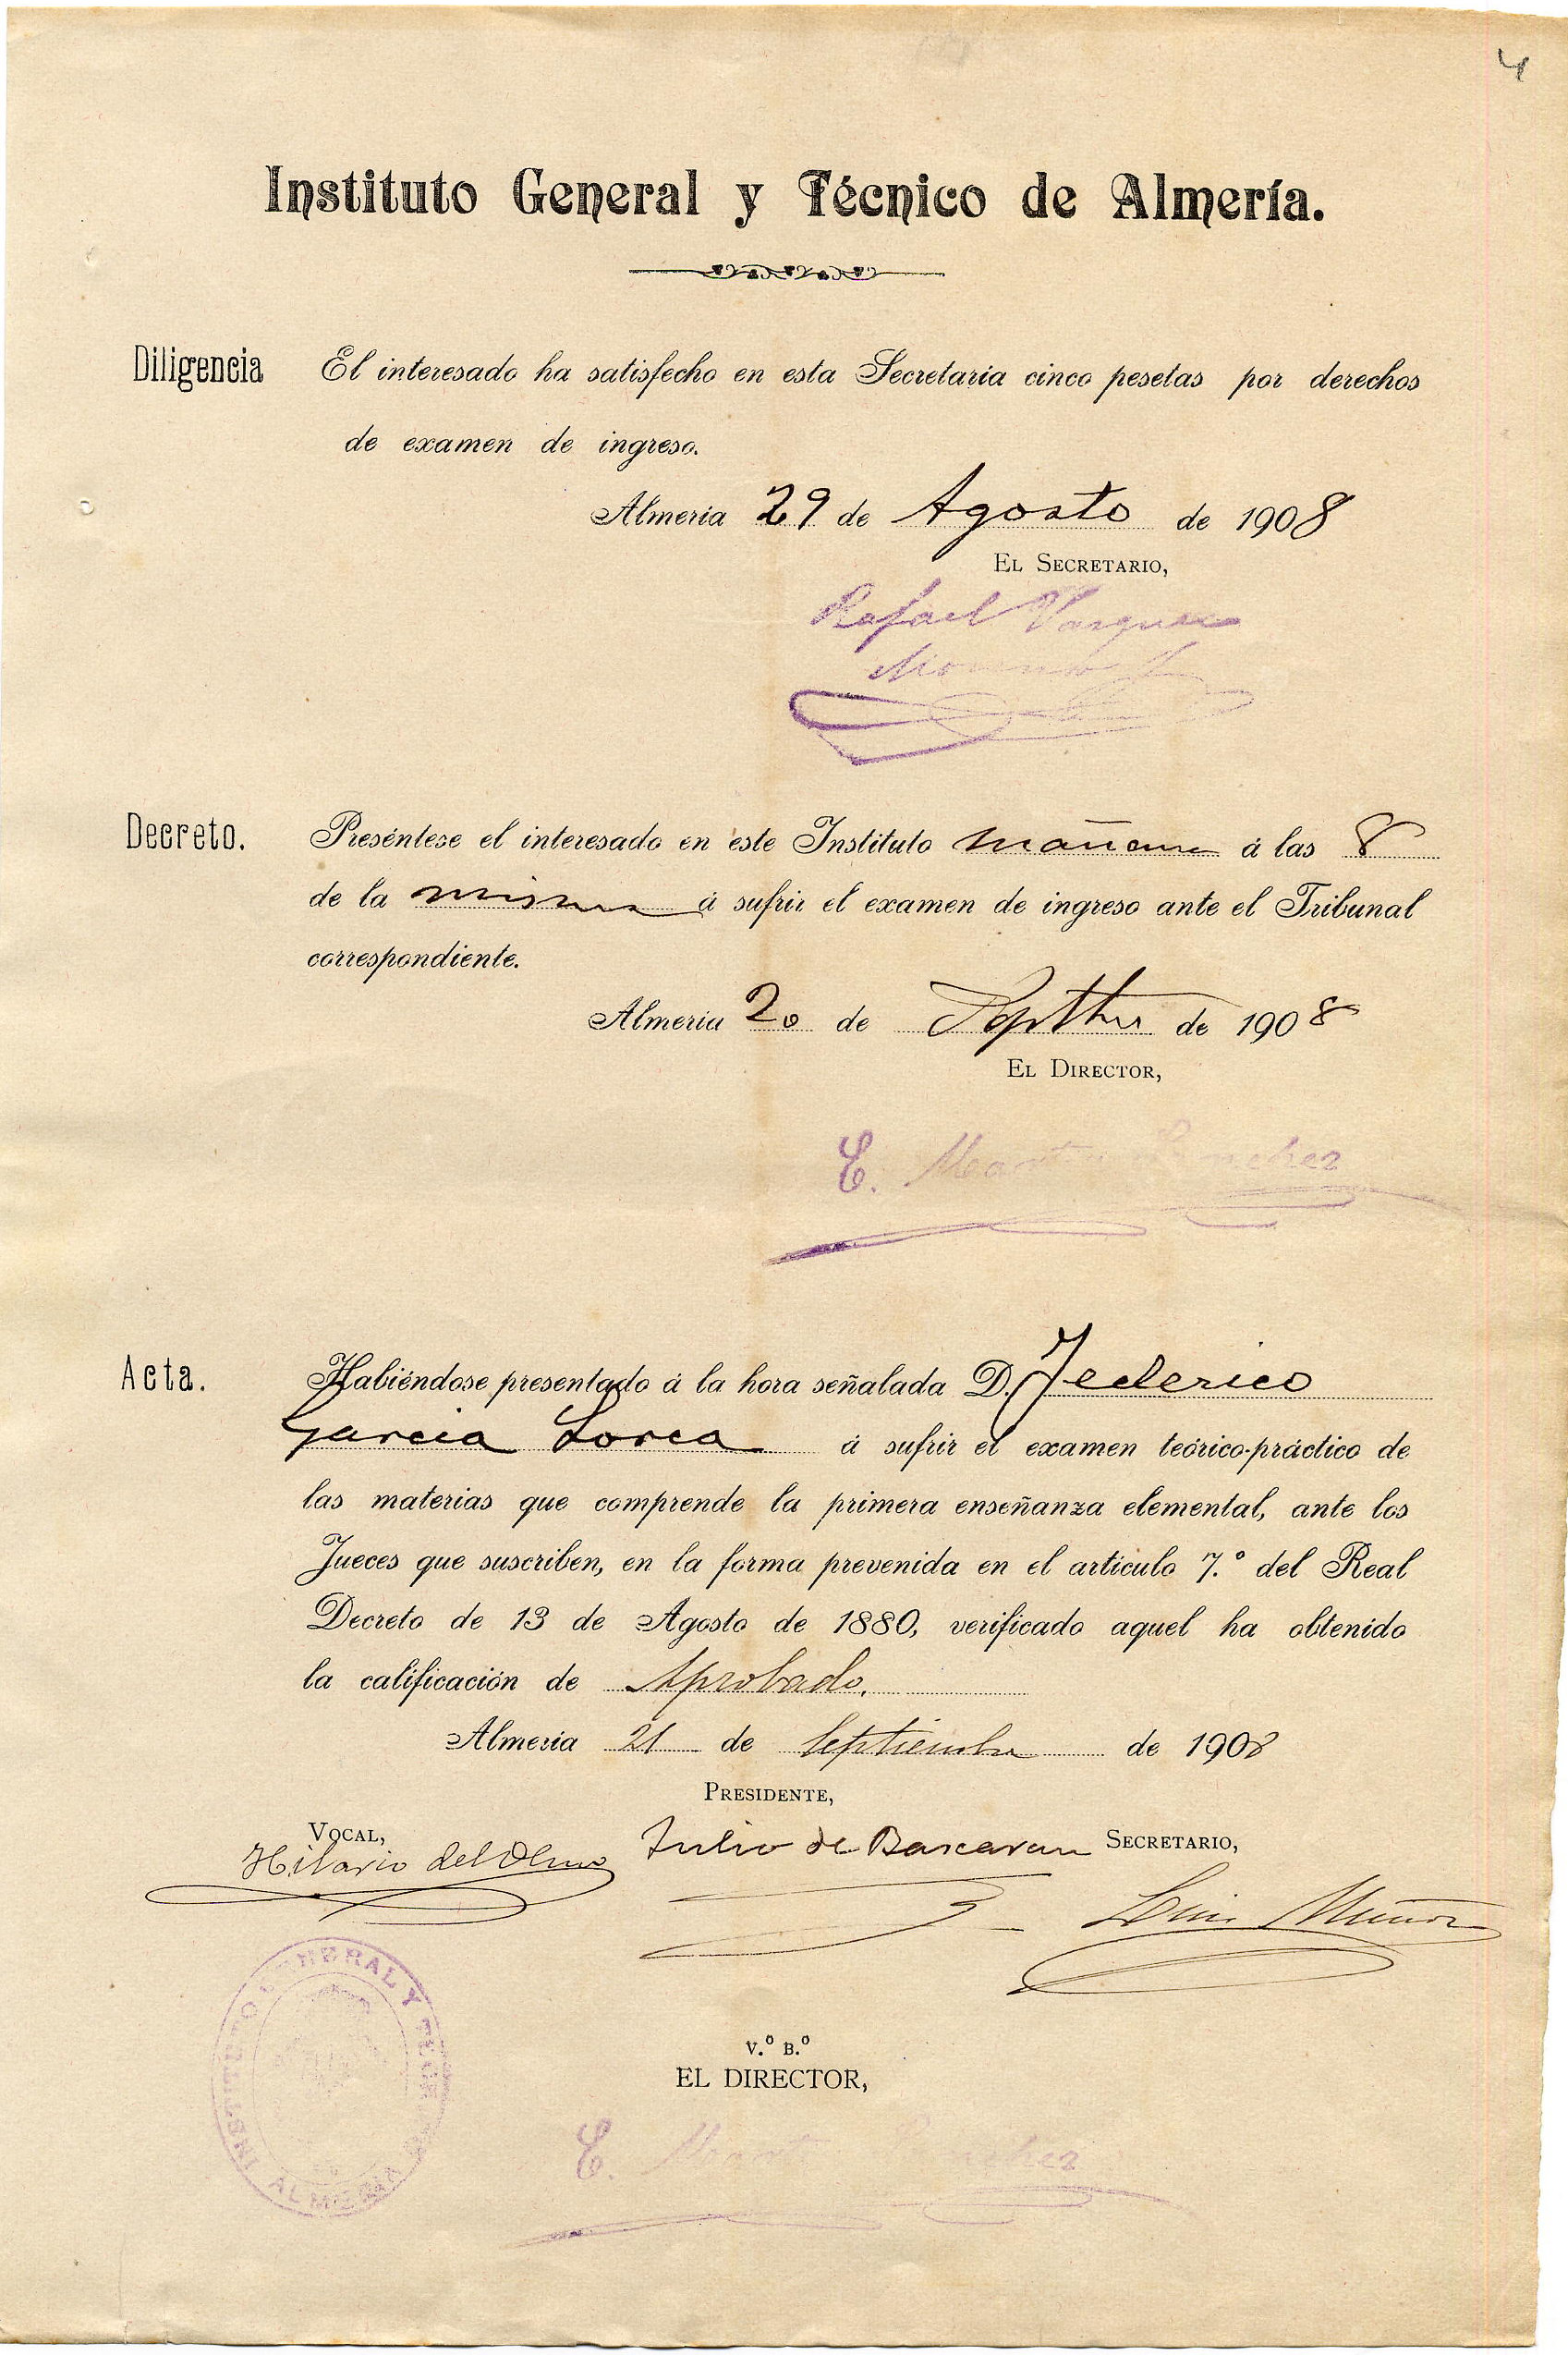 4
Instituto General y Técnico de Almería.
Diligencia El interesado ha satisfecho en esta Secretaría cinco pesetas por derechos
de examen de ingreso.
Almería 29 de Agosto de 1908
EL SECRETARIO,
Rafael Vasquez
Moreno
Decreto. Preséntese el interesado en este Instituto mañana á las 8
de la misma á sufrir el examen de ingreso ante el Tribunal
correspondiente.
Almería 20 de Septbre de 1908
EL DIRECTOR,
E. Martin Sanchez
Acta. Habiéndose presentado á la hora señalada D. Federico
Garcia Lorca á sufrir el examen teórico-práctico de
las materias que comprende la primera enseñanza elemental, ante los
Jueces que suscriben, en la forma prevenida en el artículo 7.º del Real
Decreto de 13 de Agosto de 1880, verificado aquel ha obtenido
la calificación de Aprobado.
Almería 21 de Septiembre de 1908
PRESIDENTE,
VOCAL,
SECRETARIO,
Hilario del Olmo
Julio de Bascaran
Luis Muñoz
INSTITUTO GENERAL Y TECN
ALMERIA
V.º B.º
EL DIRECTOR,
E. Martin Sanchez